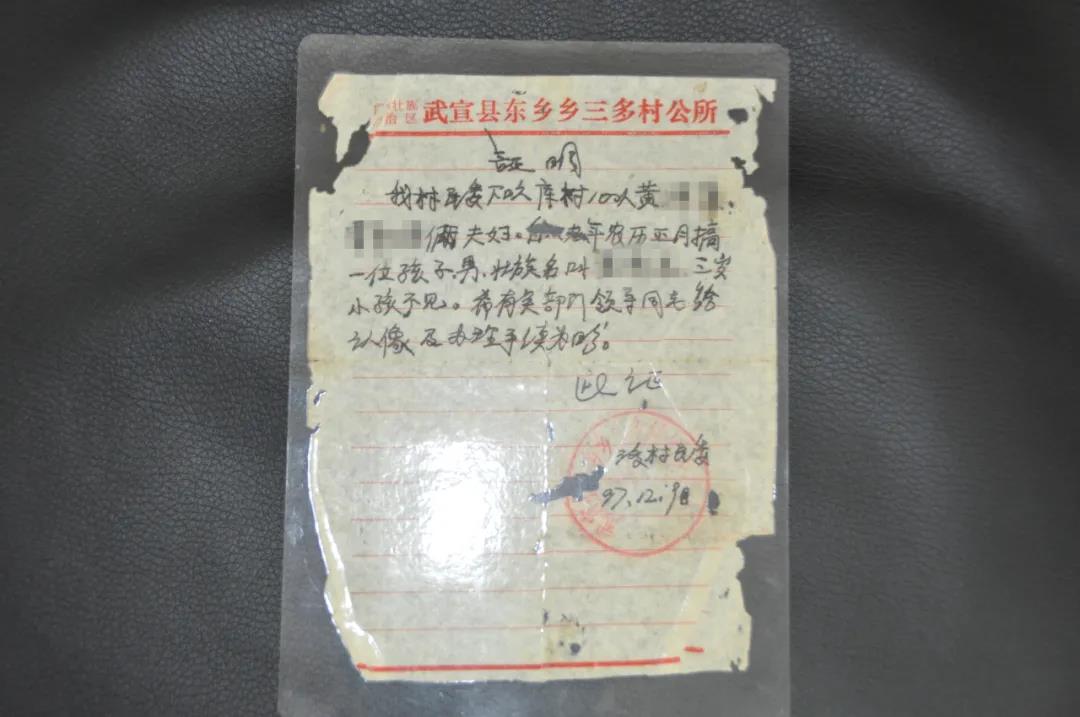 广西壮族自治区 武宣县东乡乡三多村公所
证明
我村民委下 库村10队黄
俩夫妇。 年农历正月搞
一位孩子.男.壮族名叫 三岁
小孩不见。希有关部门领导同志给
认像及办理手续为盼。
此证
三多村民委
97.12.9日